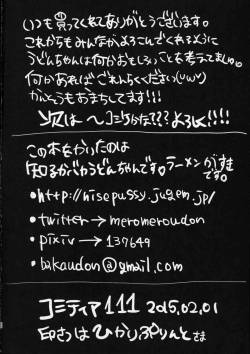 いつも買ってくれてありがとうございます。
これからもみんながよろこんでくれるように
うどんちゃんは何かおもしろいことを考えてましゅ。
何かあればごれんらくください(UωU)
かんそうもおまちしてます!!!
次は〜コミケかな???よろしく!!!!
この本をかいたのは
知るかバカうどんちゃんです。ラーメンがすき
です。
・http://nisepussy.jugem.jp/
・twitter→meromeroudon
・pixiv→137649
・bakaudon@gmail.com
コミティア111 2015.02.01
印さつはひかりぷりんとさま